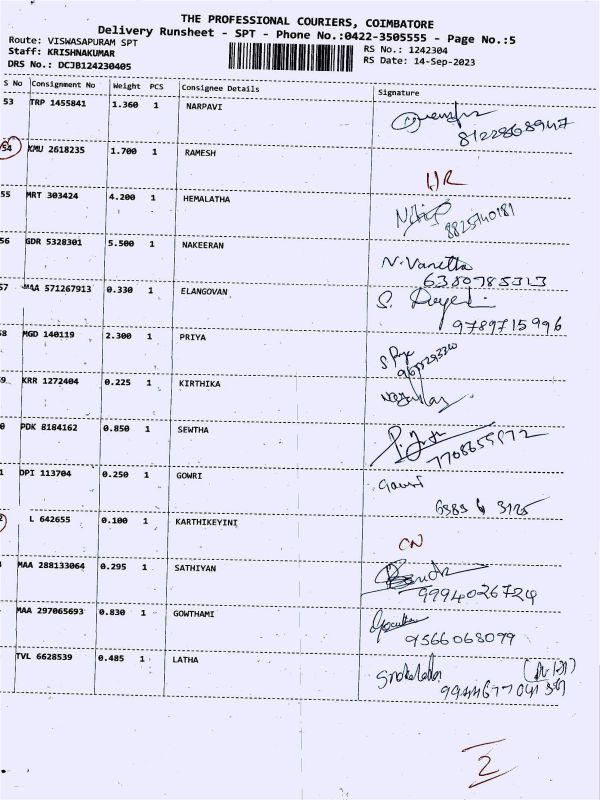 THE PROFESSIONAL COURIERS, COIMBATORE
Delivery Runsheet - SPT - Phone No.:0422-3505555 - Page No.:5
Route: VISWASAPURAM SPT
Staff: KRISHNAKUMAR
DRS No.: DCJB124230405
RS No.: 1242304
RS Date: 14-Sep-2023
S No Consignment No Weight PCS Consignee Details Signature
53 TRP 1455841 1.360 1 NARPAVI
8122868947
54 KMU 2618235 1.700 1 RAMESH
HR
55 MRT 303424 4.200 1 HEMALATHA
8825740181
56 GDR 5328301 5.500 1 NAKEERAN
N. Vanetha
6380785313
57 MAA 571267913 0.330 1 ELANGOVAN
9789715996
8 MGD 140119 2.300 1 PRIYA
9 KRR 1272404 0.225 1 KIRTHIKA
0 PDK 8184162 0.850 1 SEWTHA
1 DPI 113704 0.250 1 GOWRI
Gowri
2 L 642655 0.100 1 KARTHIKEYINI
CN
MAA 288133064 0.295 1 SATHIYAN
9994026724
MAA 297065693 0.830 1 GOWTHAMI
9566068099
TVL 6628539 0.485 1 LATHA
2